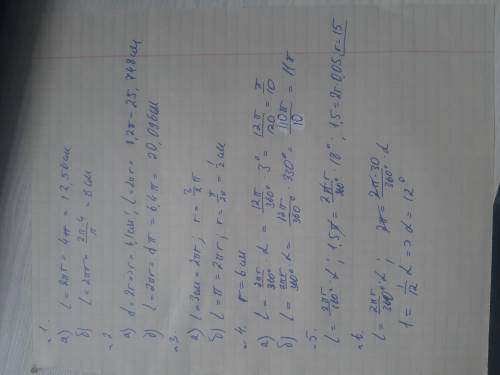 ~1.
а) l = 2πr = 4π = 12,56 см
б) l = 2πr = 2π·4/π = 8 см
~2.
а) d = 2r => r = 4,1 см; l = 2πr = 8,2π = 25,748 см
б) l = 2πr = 6,4π = 20,096 см
~3
а) l = 3 см = 2πr; r = 3/2 π
б) l = π = 2πr; r = π/2π = 1/2 см
~4. r = 6 см
а) l = 2πr/360° · α = 12π/360° · 3° = 12π/120 = π/10
б) l = 2πr/360° · α = 12π/360° · 330° = 110π/10 = 11π
~5.
l = 2πr/360° · α; 1,5π = 2πr/360° · 18°; 1,5 = 2r·0,05; r = 15
~6.
l = 2πr/360° · α; 2π = 2π·30/360° · α
1 = 1/12 α => α = 12°